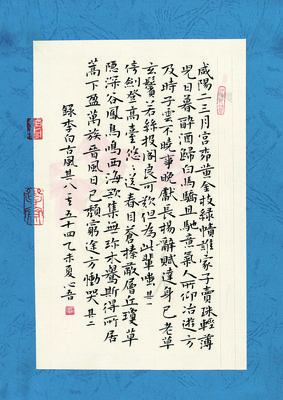 咸陽二三月宮柳黃金枝綠幘誰家子賣珠輕薄
兒日暮醉酒歸白馬驕且馳意氣人所仰冶遊方
及時子雲不曉事晚獻長楊辭賦達身已老草
玄鬢若絲投閣良可歎但為此輩嗤其一
倚劍登高臺悠〻送春目蒼榛蔽層丘瓊草
隱深谷鳳鳥鳴西海欲集無珍木鷽斯得所居
蒿下盈萬族晉風日已頹窮途方慟哭其二
錄李白古風其八其五十四乙未夏心吾